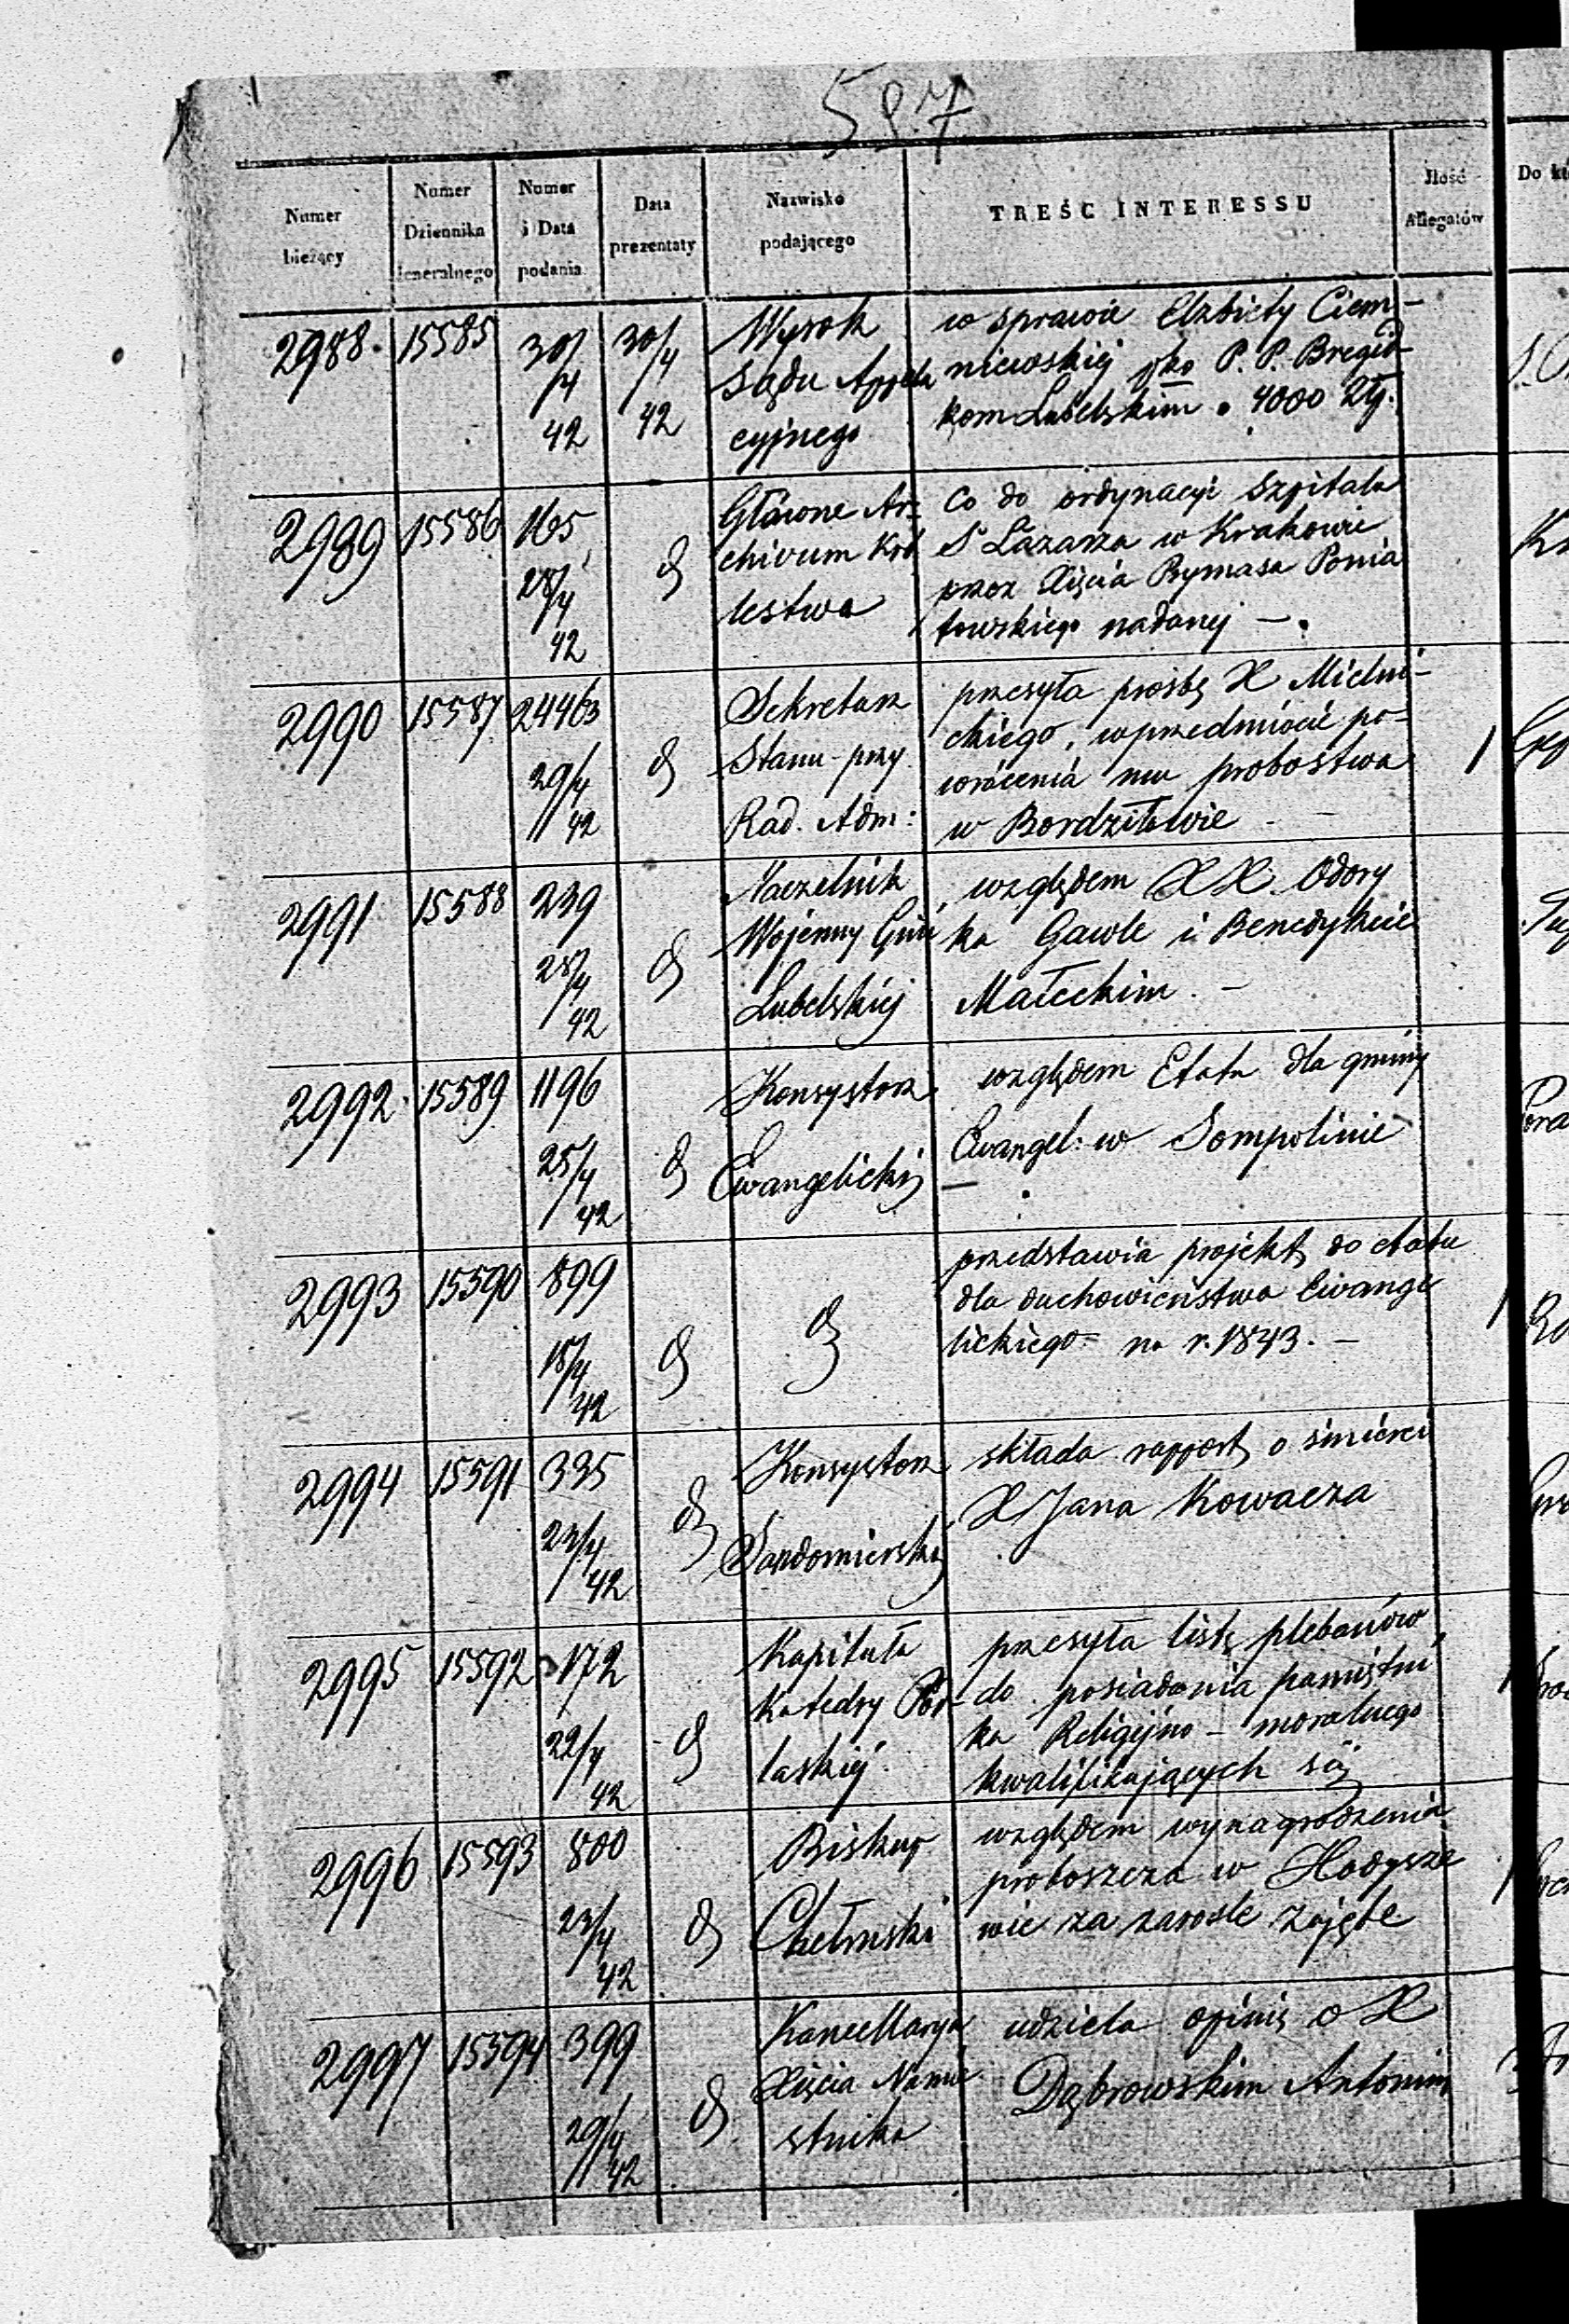 597
Numer
bieżący
Numer
Dziennika
Jeneralnego
Numer
i Data
podania
Data
prezentaty
Nazwisko
podającego
TREŚĆ INTERESSU
Jlość
Allegatów
Do kt
2988. 15585 30/4 42 30/4 42
Wyrok
Sądu Appela
cyjnego
w sprawie Elżbiety Ciem-
niewskiej pko P. P. Brygid-
kom Lubelskim o 4000 Złp.
2989 15586 165 28/4 42 d
Główne Ar-
chivum Kró
lestwa
Co do ordynacyi szpitala
S Łazarza w Krakowie
przez Xięcia Prymasa Ponia
towskiego nadanej -
2990 15587 24463 29/4 42 d
Sekretarz
Stanu przy
Rad. Adm:
przesyła prośbę X Mielni-
ckiego, w przedmiocie po-
wrócenia mu probostwa
w Bordziłowie -
1
2991 15588 239 28/4 42 d
Naczelnik
Wojenny Gub
Lubelskiej
względem XX. Odory
ka Gawle i Benedykcie
Małeckim. -
2992 15589 1196 25/4 42 d
Konsystorz
Ewangelicki
względem Etatu dla gminy
Ewangel: w Sompolinie
-
2993 15590 899 18/4 42 d
d
przedstawia projekt do etatu
dla duchowieństwa Ewange
lickiego na r. 1843. -
1
2994 15591 335 23/4 42 d
Konsystorz
Sandomierski
składa rapport o śmierci
X Jana Kowacza
2995 15592 172 22/4 42 d
Kapituła
Katedry Pod-
laskiej
przesyła listę plebanów
do posiadania pamiętni
ka Religijno - moralnego
kwalifikających się
1
2996 15593 800 23/4 42 d
Biskup
Chełmski
względem wynagrodzenia
proboszcza w Hodysze
wie za zarosle zajęte
1
2997 15594 399 29/4 42 d
Kancellarya
Xięcia Namie
stnika
udziela opinię o X
Dąbrowskim Antonim